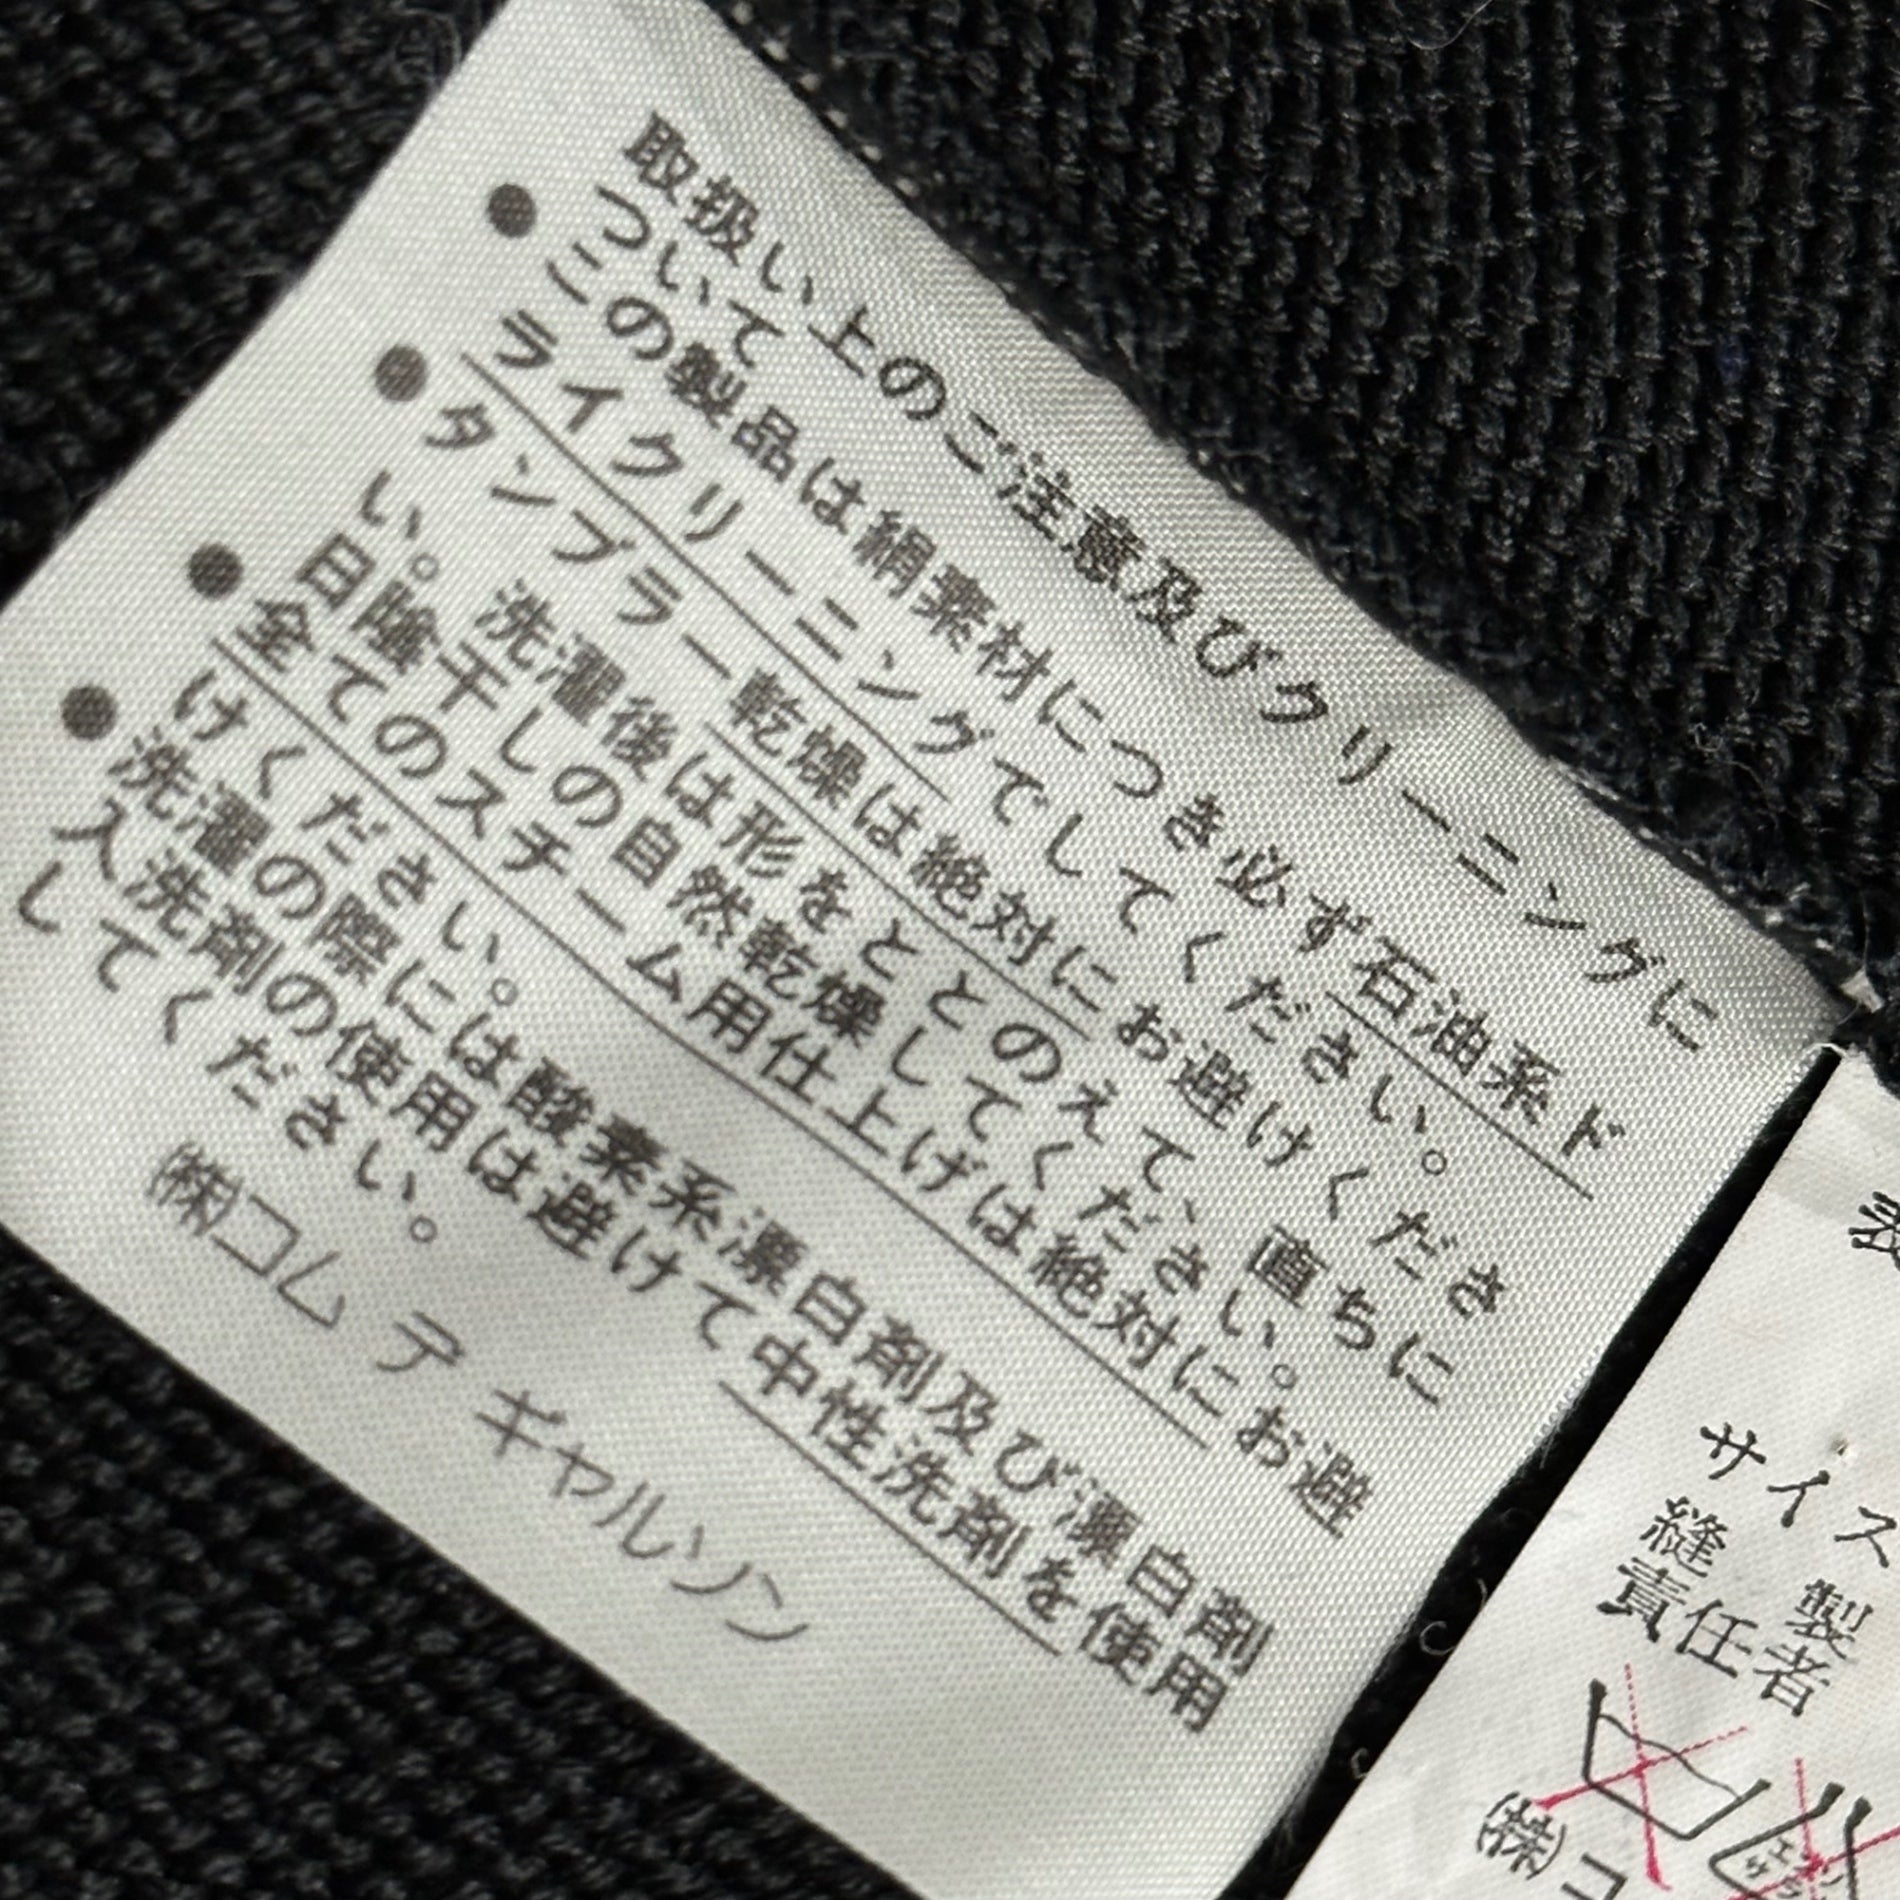 取扱い上のご注意及びクリーニングに
ついて
●この製品は絹素材につき必ず石油系ド
ライクリーニングでしてください。
●タンブラー乾燥は絶対にお避けくださ
い。洗濯後は形をととのえて、直ちに
日陰干しの自然乾燥してください。
●全てのスチーム用仕上げは絶対にお避
けください。
●洗濯の際には酸素系漂白剤及び漂白剤
入洗剤の使用は避けて中性洗剤を使用
してください。
㈱コム デ ギャルソン
サイズ
縫製
責任者
㈱コ